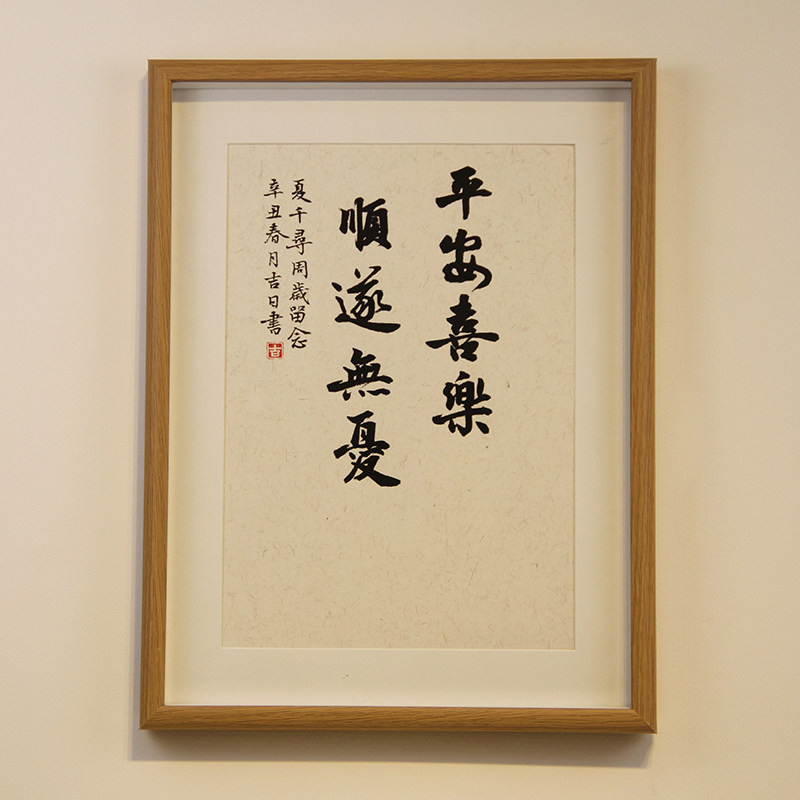 平安喜樂
順遂無憂
夏千尋周歲留念
辛丑春月吉日書